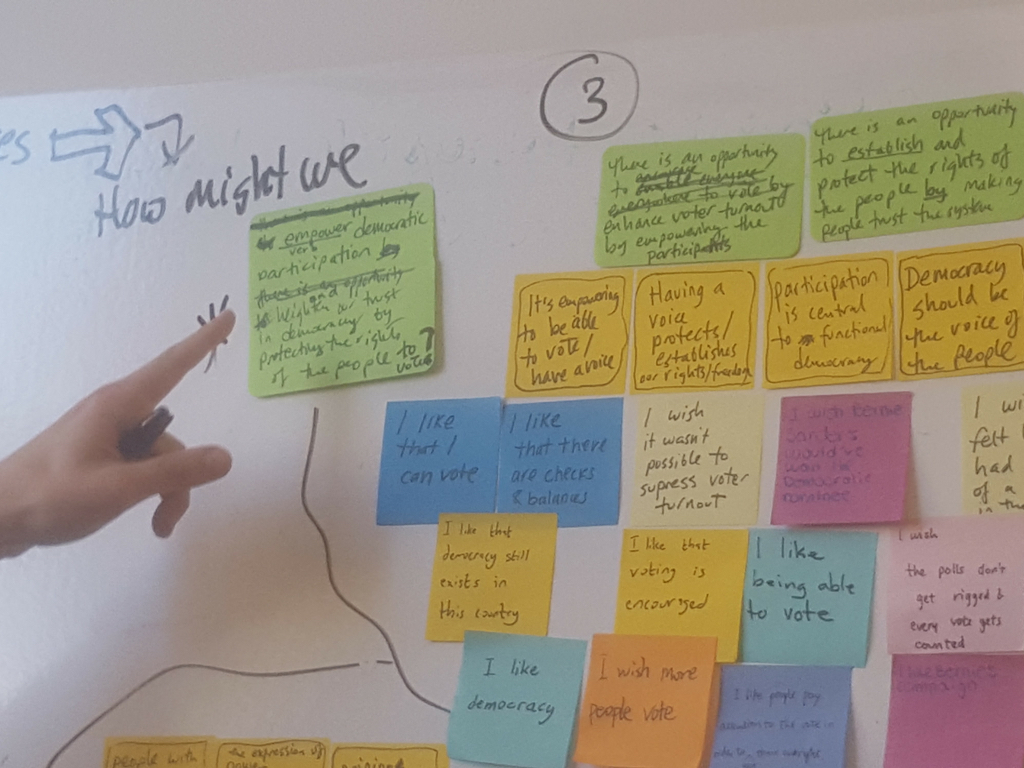 es
3
How might we
empower democratic
participation
there is an opportunity
in democracy by
protecting the rights
of the people to
vote?
there is an opportunity
to enable everyone
everywhere to vote by
enhance voter turnout
by empowering the
participants
there is an opportunity
to establish and
protect the rights of
the people by making
people trust the system
It's empowering
to be able
to vote/
have a voice
Having a
voice
protects/
establishes
our rights/freedom
participation
is central
to functional
democracy
Democracy
should be
the voice of
the people
I like
that I
can vote
I like
that there
are checks
& balances
I wish
it wasn't
possible to
supress voter
turnout
I wish Bernie
Sanders
would've
won the
Democratic
nominee
I wi
felt
had
of a
I like that
democracy still
exists in
this country
I like that
voting is
encouraged
I like
being able
to vote
I wish
the polls don't
get rigged &
every vote gets
counted
I like
democracy
I wish more
people vote
I like people pay
attention to the
I like Bernie's
campaign
people with
the expression of